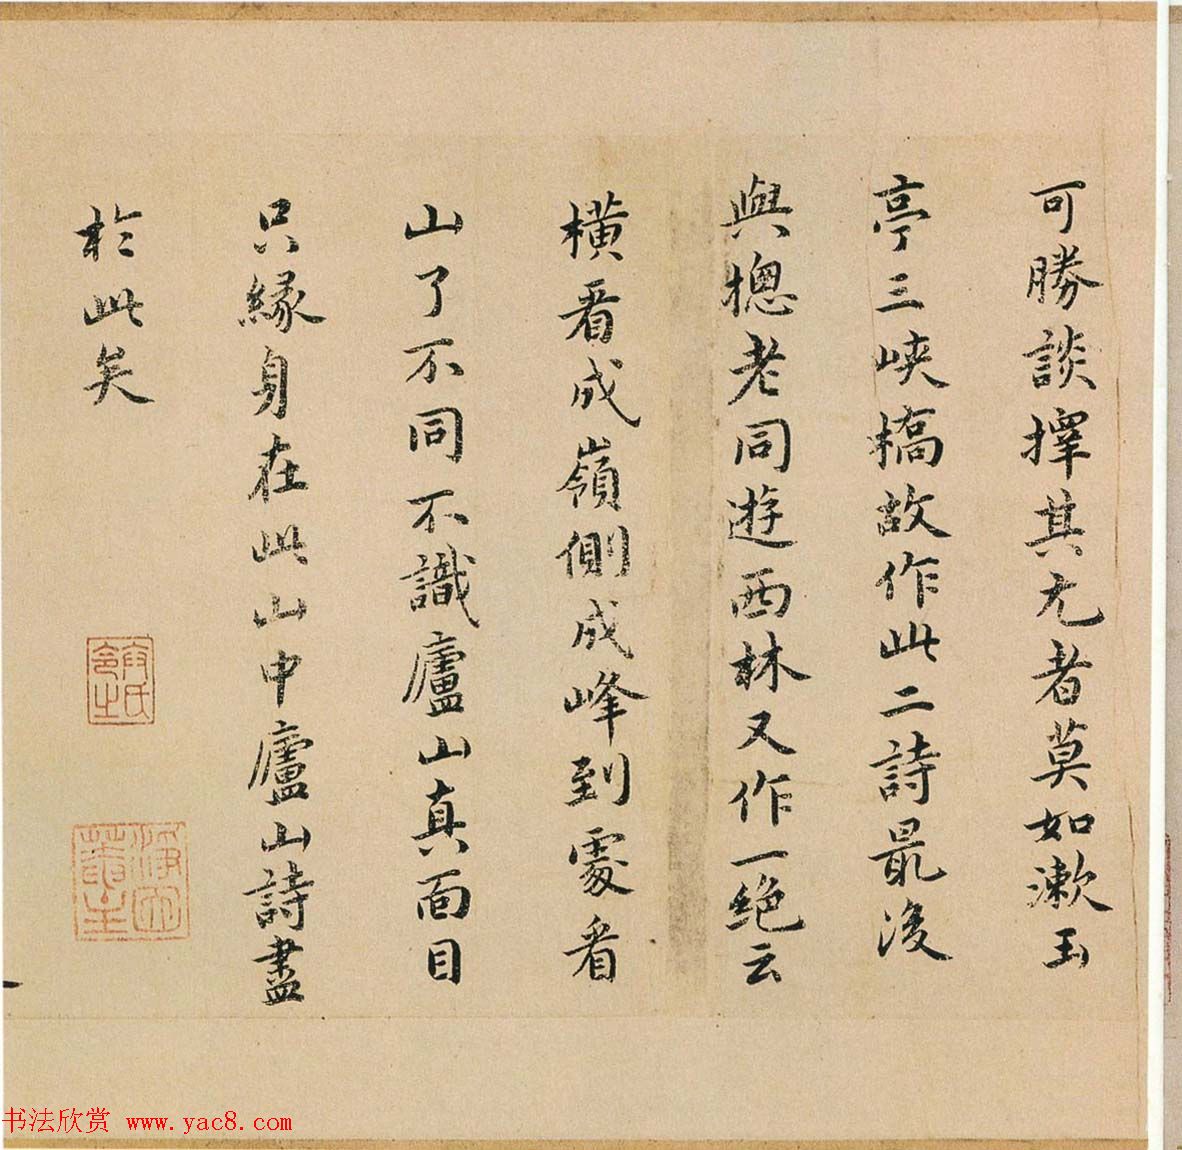 可勝談擇其尤者莫如漱玉
亭三峽橋故作此二詩最後
與揔老同遊西林又作一絶云
橫看成嶺側成峰到處看
山了不同不識廬山真面目
只緣身在此山中廬山詩盡
於此矣
书法欣赏 www.yac8.com